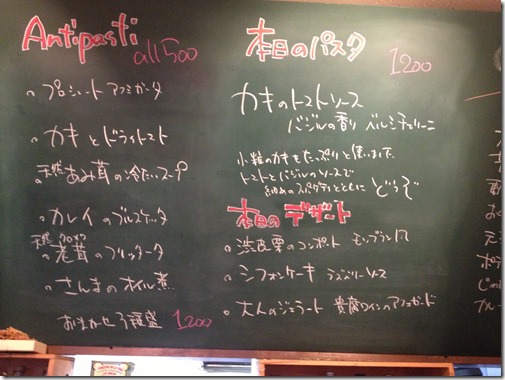 Antipasti
all 500
。プロシュート アフミガータ
。カキとドライトマト
。天然あみ茸の冷たいスープ
。カレイのブルスケッタ
天然
茸のフリッタータ
。さんまのオイル煮
おまかせ3種盛 1200
本日のパスタ
1200
カキのトマトソース
バジルの香り ベルミチェリーニ
小粒のカキをたっぷりと使いました
トマトとバジルのソースで
細めのスパゲティとともに どうぞ
本日のデザート
。渋皮栗のコンポート モンブラン風
。シフォンケーキ ラズベリーソース
。大人のジェラート 貴腐ワインのアフォガード